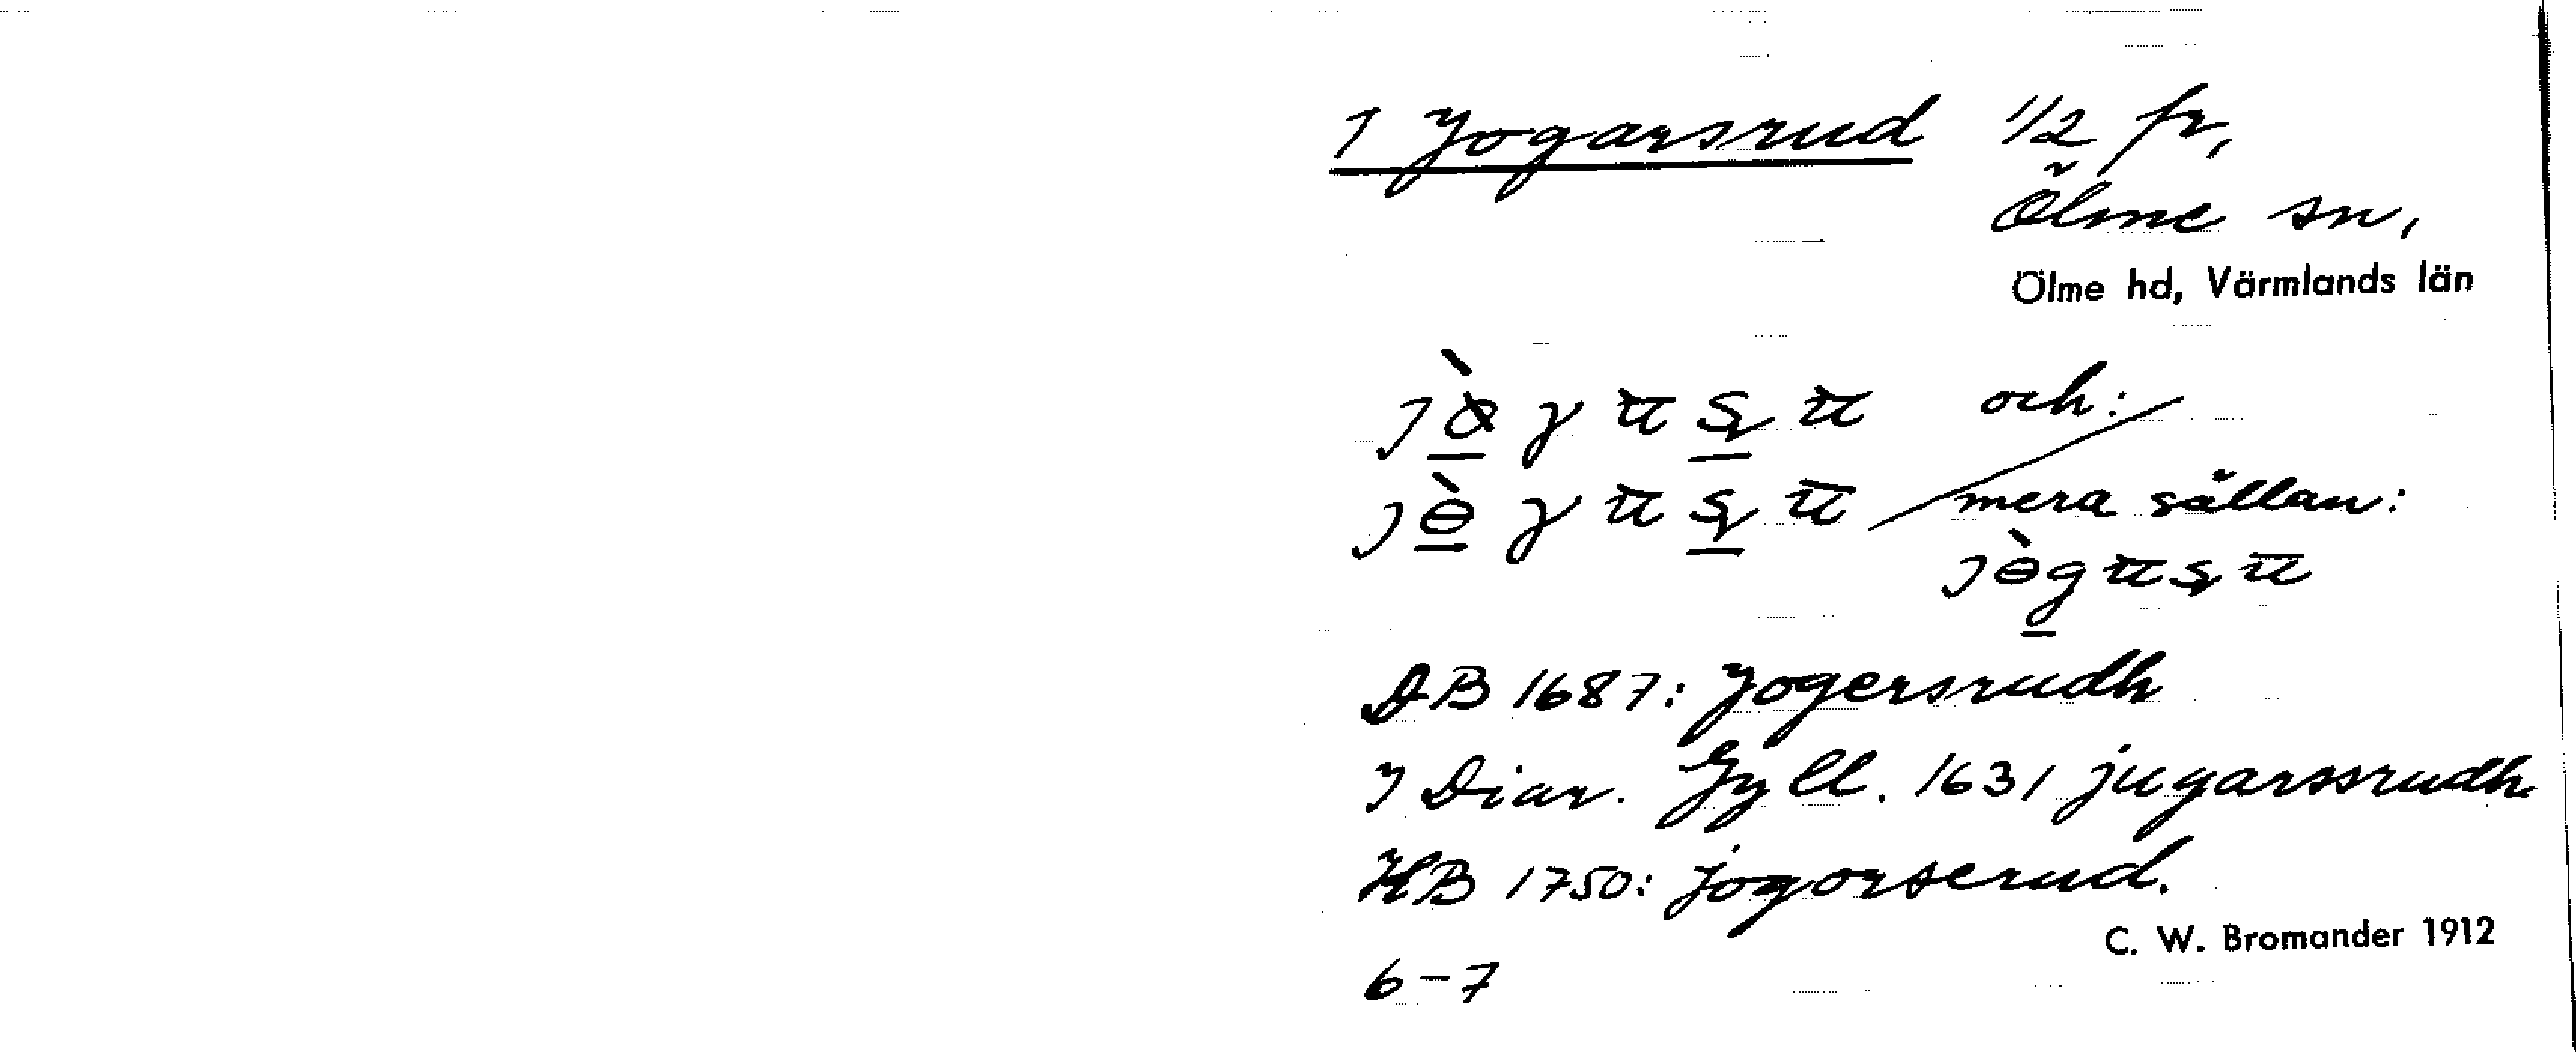 1 Jogarsrud 1/2 fr,
Ölme sn,
Ölme hd, Värmlands län
och:
mera sällan:
DB 1687: Jogersrudh
I Diar. Gyll. 1631 jugarssrudh
HB 1750: jogorserud.
C. W. Bromander 1912
6-7